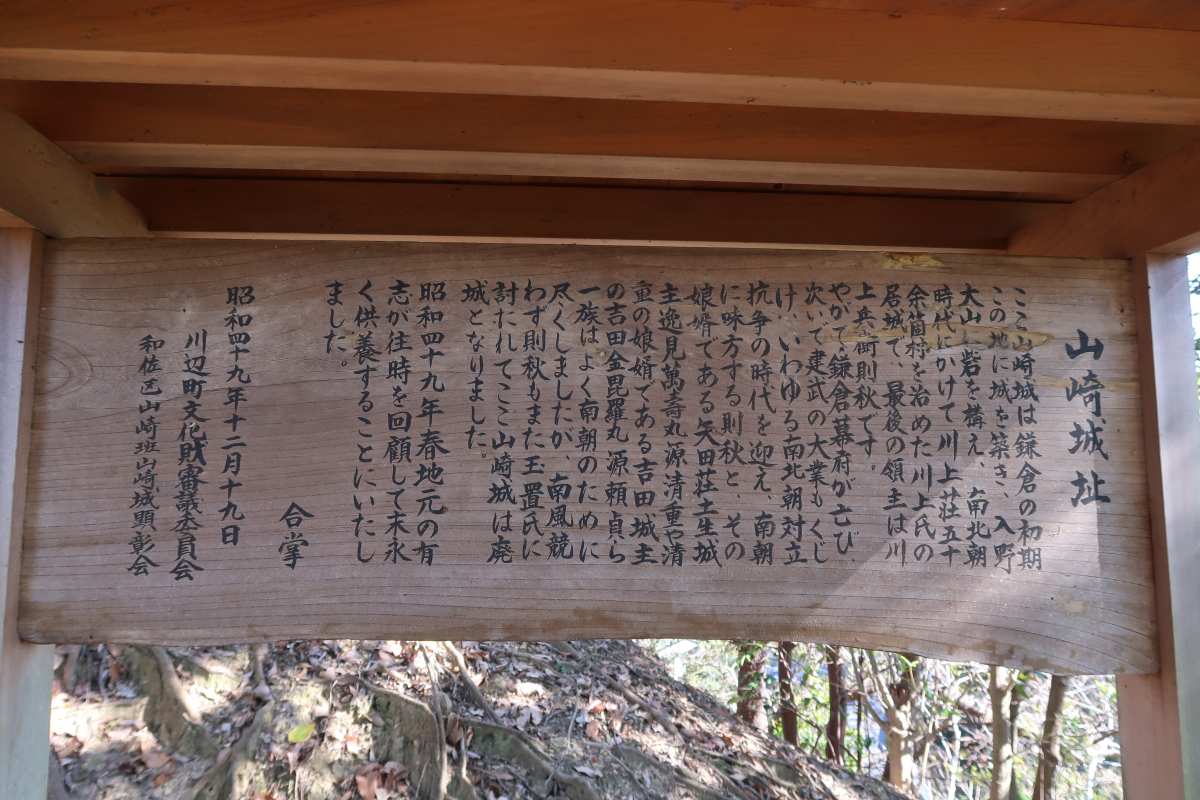 山崎城址
ここ山崎城は鎌倉の初期
この地に城を築き、入野
大山に砦を構え、南北朝
時代にかけて川上荘五十
余箇村を治めた川上氏の
居城で、最後の領主は川
上兵衛則秋です。
やがて鎌倉幕府が亡び、
次いで建武の大業もくじ
け、いわゆる南北朝対立
抗争の時代を迎え、南朝
に味方する則秋と、その
娘婿である矢田荘土生城
主逸見萬壽丸源清重や清
重の娘婿である吉田城主
の吉田金毘羅丸源頼貞ら
一族はよく南朝のために
尽くしましたが、南風競
わず則秋もまた玉置氏に
討たれてここ山崎城は廃
城となりました。
昭和四十九年春地元の有
志が往時を回顧して末永
く供養することにいたし
ました。
合掌
昭和四十九年十二月十九日
川辺町文化財審議委員会
和佐区山崎班山崎城顕彰会